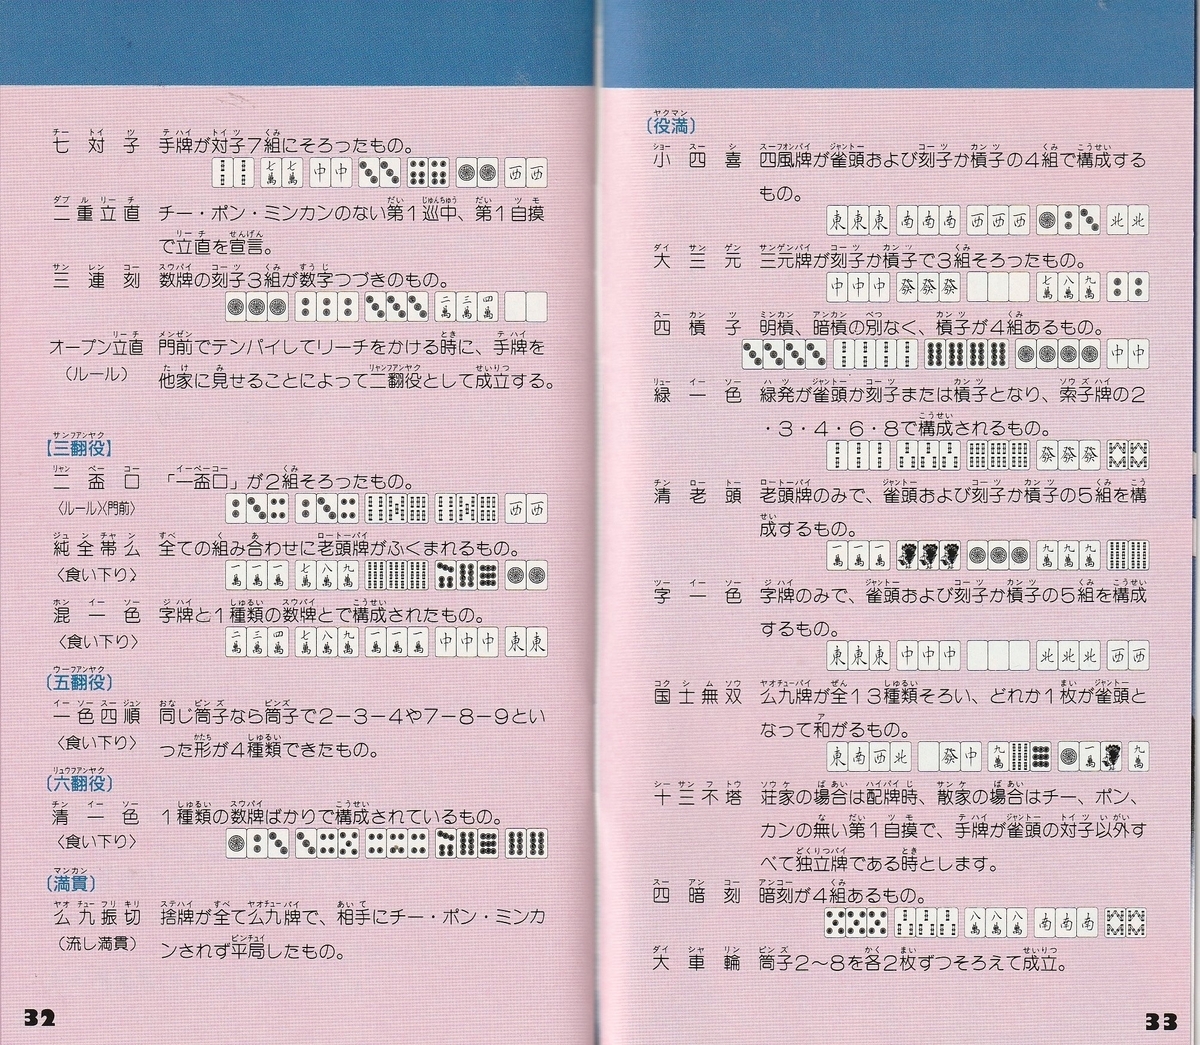 七対子 手牌が対子7組にそろったもの。
二重立直 チー・ポン・ミンカンのない第1巡中、第1自摸
で立直を宣言。
三連刻 数牌の刻子3組が数字つづきのもの。
オープン立直 門前でテンパイしてリーチをかける時に、手牌を
(ルール) 他家に見せることによって二翻役として成立する。
【三翻役】
二盃口 「一盃口」が2組そろったもの。
〈ルール〉〈門前〉
純全帯么 全ての組み合わせに老頭牌がふくまれるもの。
〈食い下り〉
混一色 字牌と1種類の数牌とで構成されたもの。
〈食い下り〉
〔五翻役〕
一色四順 同じ筒子なら筒子で2－3－4や7－8－9とい
〈食い下り〉 った形が4種類できたもの。
〔六翻役〕
清一色 1種類の数牌ばかりで構成されているもの。
〈食い下り〉
〔満貫〕
么九振切 捨牌が全て么九牌で、相手にチー・ポン・ミンカ
(流し満貫) ンされず平局したもの。
32
〔役満〕
小四喜 四風牌が雀頭および刻子か槓子の4組で構成する
もの。
大三元 三元牌が刻子か槓子で3組そろったもの。
四槓子 明槓、暗槓の別なく、槓子が4組あるもの。
緑一色 緑発が雀頭か刻子または槓子となり、索子牌の2
・3・4・6・8で構成されるもの。
清老頭 老頭牌のみで、雀頭および刻子か槓子の5組を構
成するもの。
字一色 字牌のみで、雀頭および刻子か槓子の5組を構成
するもの。
国士無双 么九牌が全13種類そろい、どれか1枚が雀頭と
なって和がるもの。
十三不塔 荘家の場合は配牌時、散家の場合はチー、ポン、
カンの無い第1自摸で、手牌が雀頭の対子以外す
べて独立牌である時とします。
四暗刻 暗刻が4組あるもの。
大車輪 筒子2〜8を各2枚ずつそろえて成立。
33